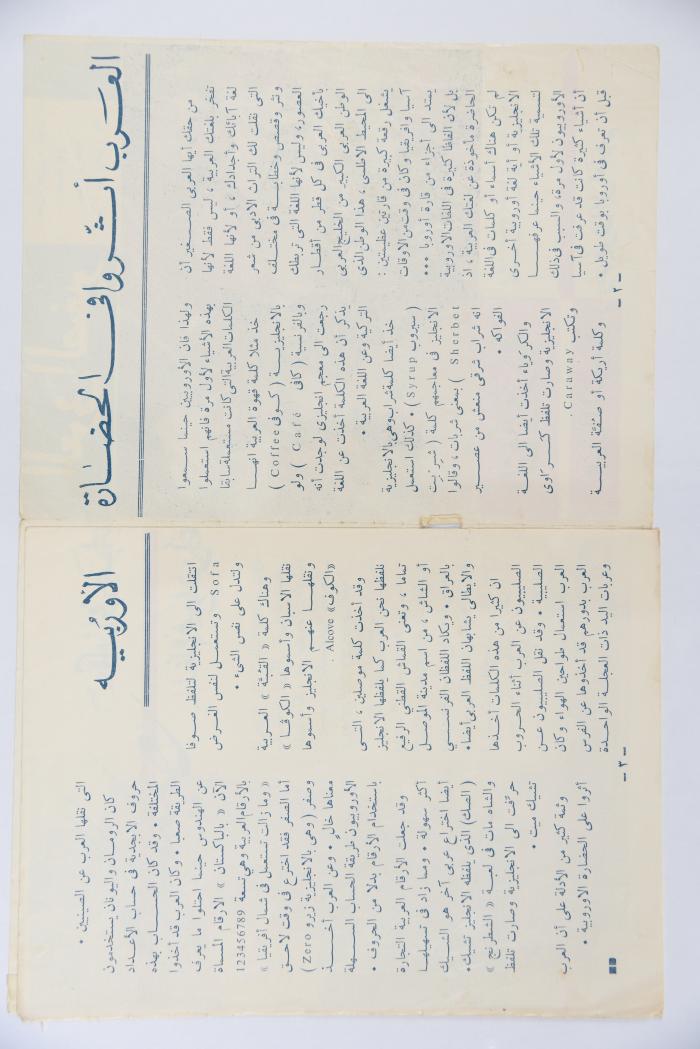 العرب أثروا في الحضارة
من حقك أيها العربى الصغير أن
تفخر بلغتك العربية ، ليس فقط لأنها
لغة آبائك وأجدادك ، أو لأنها اللغة
التى نقلت لك التراث الأدبى من شعر
ونثر وقصص وخطابة فى مختلف
العصور، وليس لأنها اللغة التى تربطك
بأخيك العربى فى كل قطر من أقطار
الوطن العربى الكبير من الخليج العربى
الى المحيط الأطلسى ، هذا الوطن الذى
يشغل رقعة كبيرة من قارتين عظيمتين :
آسيا وافريقيا وكان فى وقت من الاوقات
يمتد الى أجزاء من قارة أوروبا ...
بل لأن ألفاظا كثيرة فى اللغات الاوروبية
الحاضرة مأخوذة عن لغتك العربية ، اذ
لم تكن هناك أسماء أو كلمات فى اللغة
الانجليزية أو أية لغة أوروبية أخرى
لتسمية تلك الأشياء حينما عرفها
الأوروبيون لأول مرة، والسبب فى ذلك
أن أشياء كثيرة كانت قد عرفت فى آسيا
قبل أن تعرف فى أوروبا بوقت طويل .
ولهذا فان الأوروبيين حينما سمعوا
بهذه الأشياء لأول مرة فانهم استعملوا
الكلمات العربية التى كانت مستعملة سابقا
خذ مثلا كلمة قهوة العربية انها
بالانجليزية ( كوفى Coffee )
وبالفرنسية ( كافى Café ) ولو
رجعت الى معجم انجليزى لوجدت أنه
يذكر أن هذه الكلمة أخذت عن اللغة
التركية وعن اللغة العربية .
خذ أيضا كلمة شراب وهى بالانجليزية
( سيروب Syrup ) . كذلك استعمل
الانجليز فى معاجمهم كلمة ( شربت
Sherbet ) بمعنى شربات ، وقالوا
انه شراب شرقى منعش من عصير
الفواكه .
والكرَوياء أخذت أيضا الى اللغة
الانجليزية وصارت تلفظ كراوى
وتكتب Caraway .
وكلمة أريكة أو صُفّة العربية
- ٢ -
الأوربيه
انتقلت الى الانجليزية لتلفظ صوفا
Sofa وتستعمل لنفس الغرض
ولتدل على نفس الشىء .
وهناك كلمة « القبة » العربية
نقلها الأسبان وأسموها « الكوفا »
ونقلها عنهم الانجليز وأسموها
« الكوف » Alcove .
وقد أخذت كلمة موصلين ، التى
نلفظها نحن العرب كما يلفظها الانجليز
تماما ، وتعنى القماش القطني الرفيع
أو الشاش ، من اسم مدينة الموصل
بالعراق . ويكاد اللفظان الفرنسي
والايطالى يشابهان اللفظ العربى أيضا.
ان كثيرا من هذه الكلمات أخذها
الصليبيون عن العرب أثناء الحروب
الصليبية . وقد نقل الصليبيون عن
العرب استعمال طواحين الهواء وكان
العرب بدورهم قد أخذوها عن الفرس
وعربات اليد ذات العجلة الواحدة
التى نقلها العرب عن الصينيين .
كان الرومان واليونان يستخدمون
حروف الأبجدية فى حساب الأعداد
المختلفة . وقد كان الحساب بهذه
الطريقة صعبا . وكان العرب قد أخذوا
عن الهندوس حينما احتلوا ما يعرف
الآن « بالباكستان » الأرقام المسماة
بالأرقام العربية وهى تسعة 123456789
« وما زالت تستعمل فى شمال أفريقيا »
أما الصفر فقد اخترع فى وقت لاحق
وصفر (وهى بالانجليزية زيرو Zero)
معناها خال . وعن العرب أخذ
الأوروبيون طريقة الحساب السهلة
باستخدام الأرقام بدلا من الحروف .
وقد جعلت الأرقام العربية التجارة
أكثر سهولة . ومما زاد فى تسهيلها
أيضا اختراع عربى آخر هو الشيك
( الصك) الذى يلفظه الانجليز تشيك.
والشاه مات فى لعبة « الشطرنج »
حرفت الى الانجليزية وصارت تلفظ
تشيك ميت .
وثمة كثير من الأدلة على أن العرب
أثروا على الحضارة الاوروبية .
- ٣ -